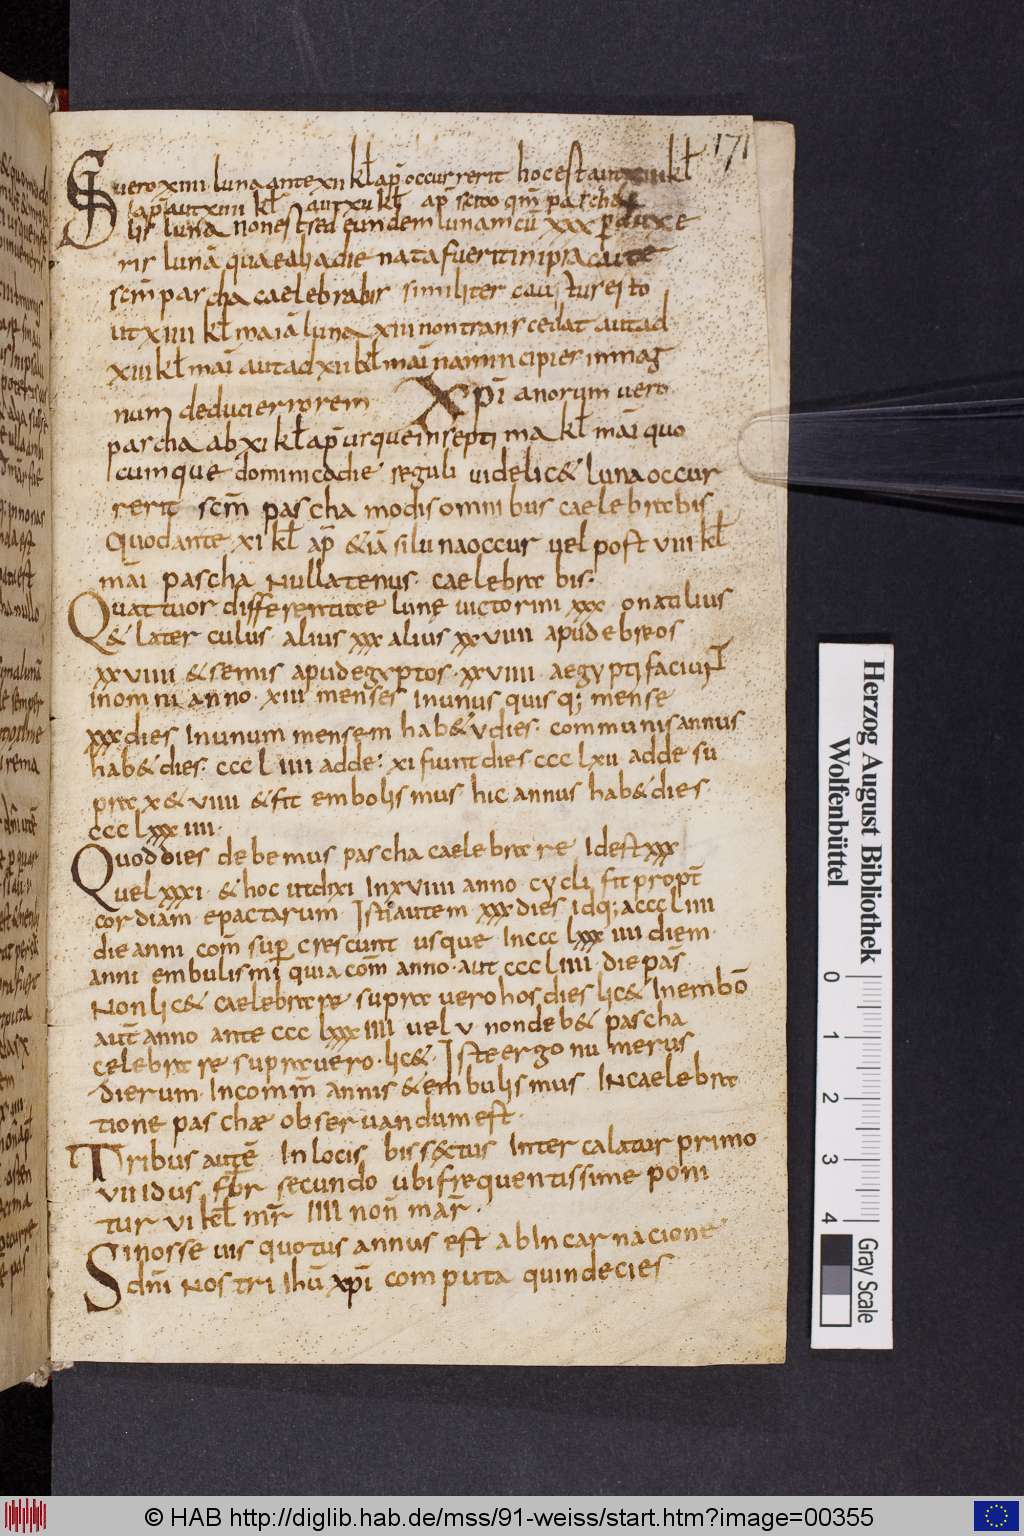 171
Si uero xiiii luna ante xii kł ap̄ occurrerit hoc est aut xiiii kł
ap̄ aut xiiii kł aut xu kł ap̄ scito qm̄ pascha
lis luna non est sed eundem lunam cū xxx perduxe
ris lunā quae alia die nata fuerit in ipsa caute
scm̄ pascha caelebrabis similiter cautus esto
ut xiiii kł maiā luna xiii non transcedat aut ad
xiii kł mai aut ad xii kł mai nam incipies in mag
num deduci errorem Xp̄i anorum uero
pascha ab xi kł ap̄ usque in septima kł māi quo
cumque dominico die reguli uidelic& luna occur
rerit scm̄ pascha modis omnibus caelebrabis
Quod ante xi kł ap̄ &iā si luna occur uel post uiii kł
māi pascha Nullatenus caelebrabis.
Quattuor differentiae lune uictorini xxx. onatilius
& laterculus alius xxx alius xxuiiii apud ebreos
xxuiiii & semis apud egyptos xxuiiii aegypti faciunt
in omni anno xiii menses In unus quisq; mense
xxx dies In unum mensem hab& v dies. communis annus
hab& dies. ccc l iiii adde: xi fiunt dies ccc lxu adde su
pra x & uiiii & fit embolismus hic annus hab& dies
ccc lxxx iiii.
Quod dies debemus pascha caelebrare Id est xxx
uel xxxi & hoc utdixi In xuiiii anno cycli fit propt̄
cordiam epactarum Isti autem xxx dies idq; a ccc l iiii
die anni com̄ sup̄ crescunt usque In ccc lxxx iiii diēm
anni embulismi quia com̄ anno aut ccc l iiii die pas
Non lic& caelebrare supra uero hos dies lic& In embō
aut̄ anno ante ccc lxxx iiii uel v non deb& pascha
celebrare supra uero lic&. Iste ergo numerus
dierum In comm̄ annis & embulismus IN caelebra
tione paschæ obseruandum est.
Tribus autē In locis bissextus Inter calatur primo
uii idus febr secundo ubi frequentissime poni
tur ui kł mr̄ IIII non̄ mar̄.
Si nosse uis quotus annus est ab Incarnacione
dn̄i Nostri Ihū xp̄i computa quindecies
Herzog August Bibliothek
Wolfenbüttel
0 1 2 3 4
Gray Scale
© HAB http://diglib.hab.de/mss/91-weiss/start.htm?image=00355